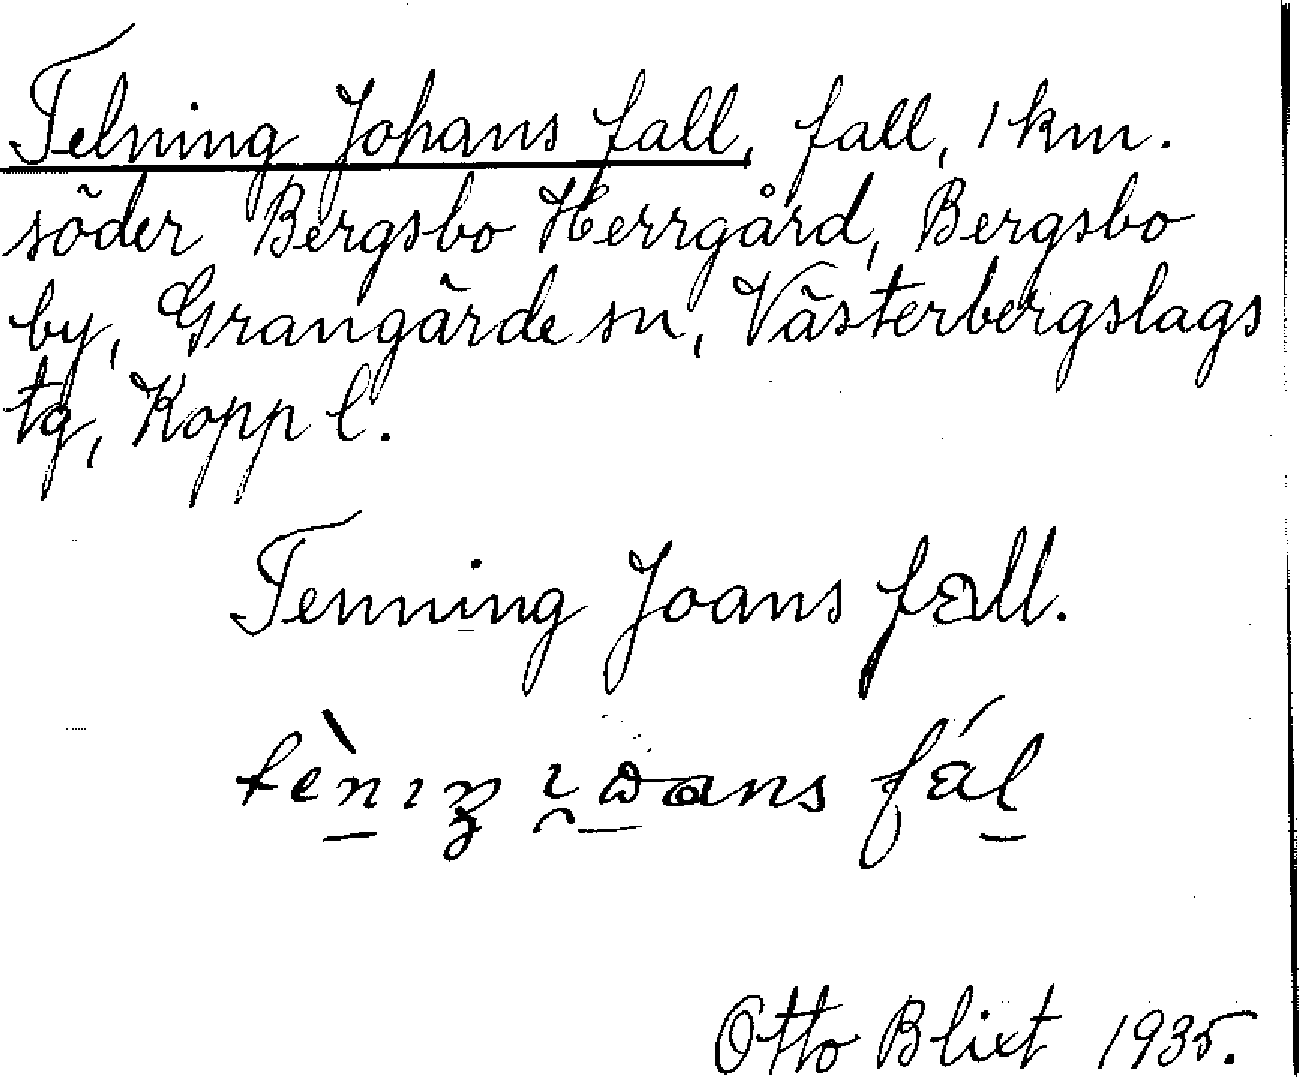 Telning Johans fall, fall, 1 km.
söder Bergsbo Herrgård, Bergsbo
by, Grangärde sn, Västerbergslags
tg, Kopp l.
Tenning Joans fall.
Otto Blixt 1935.